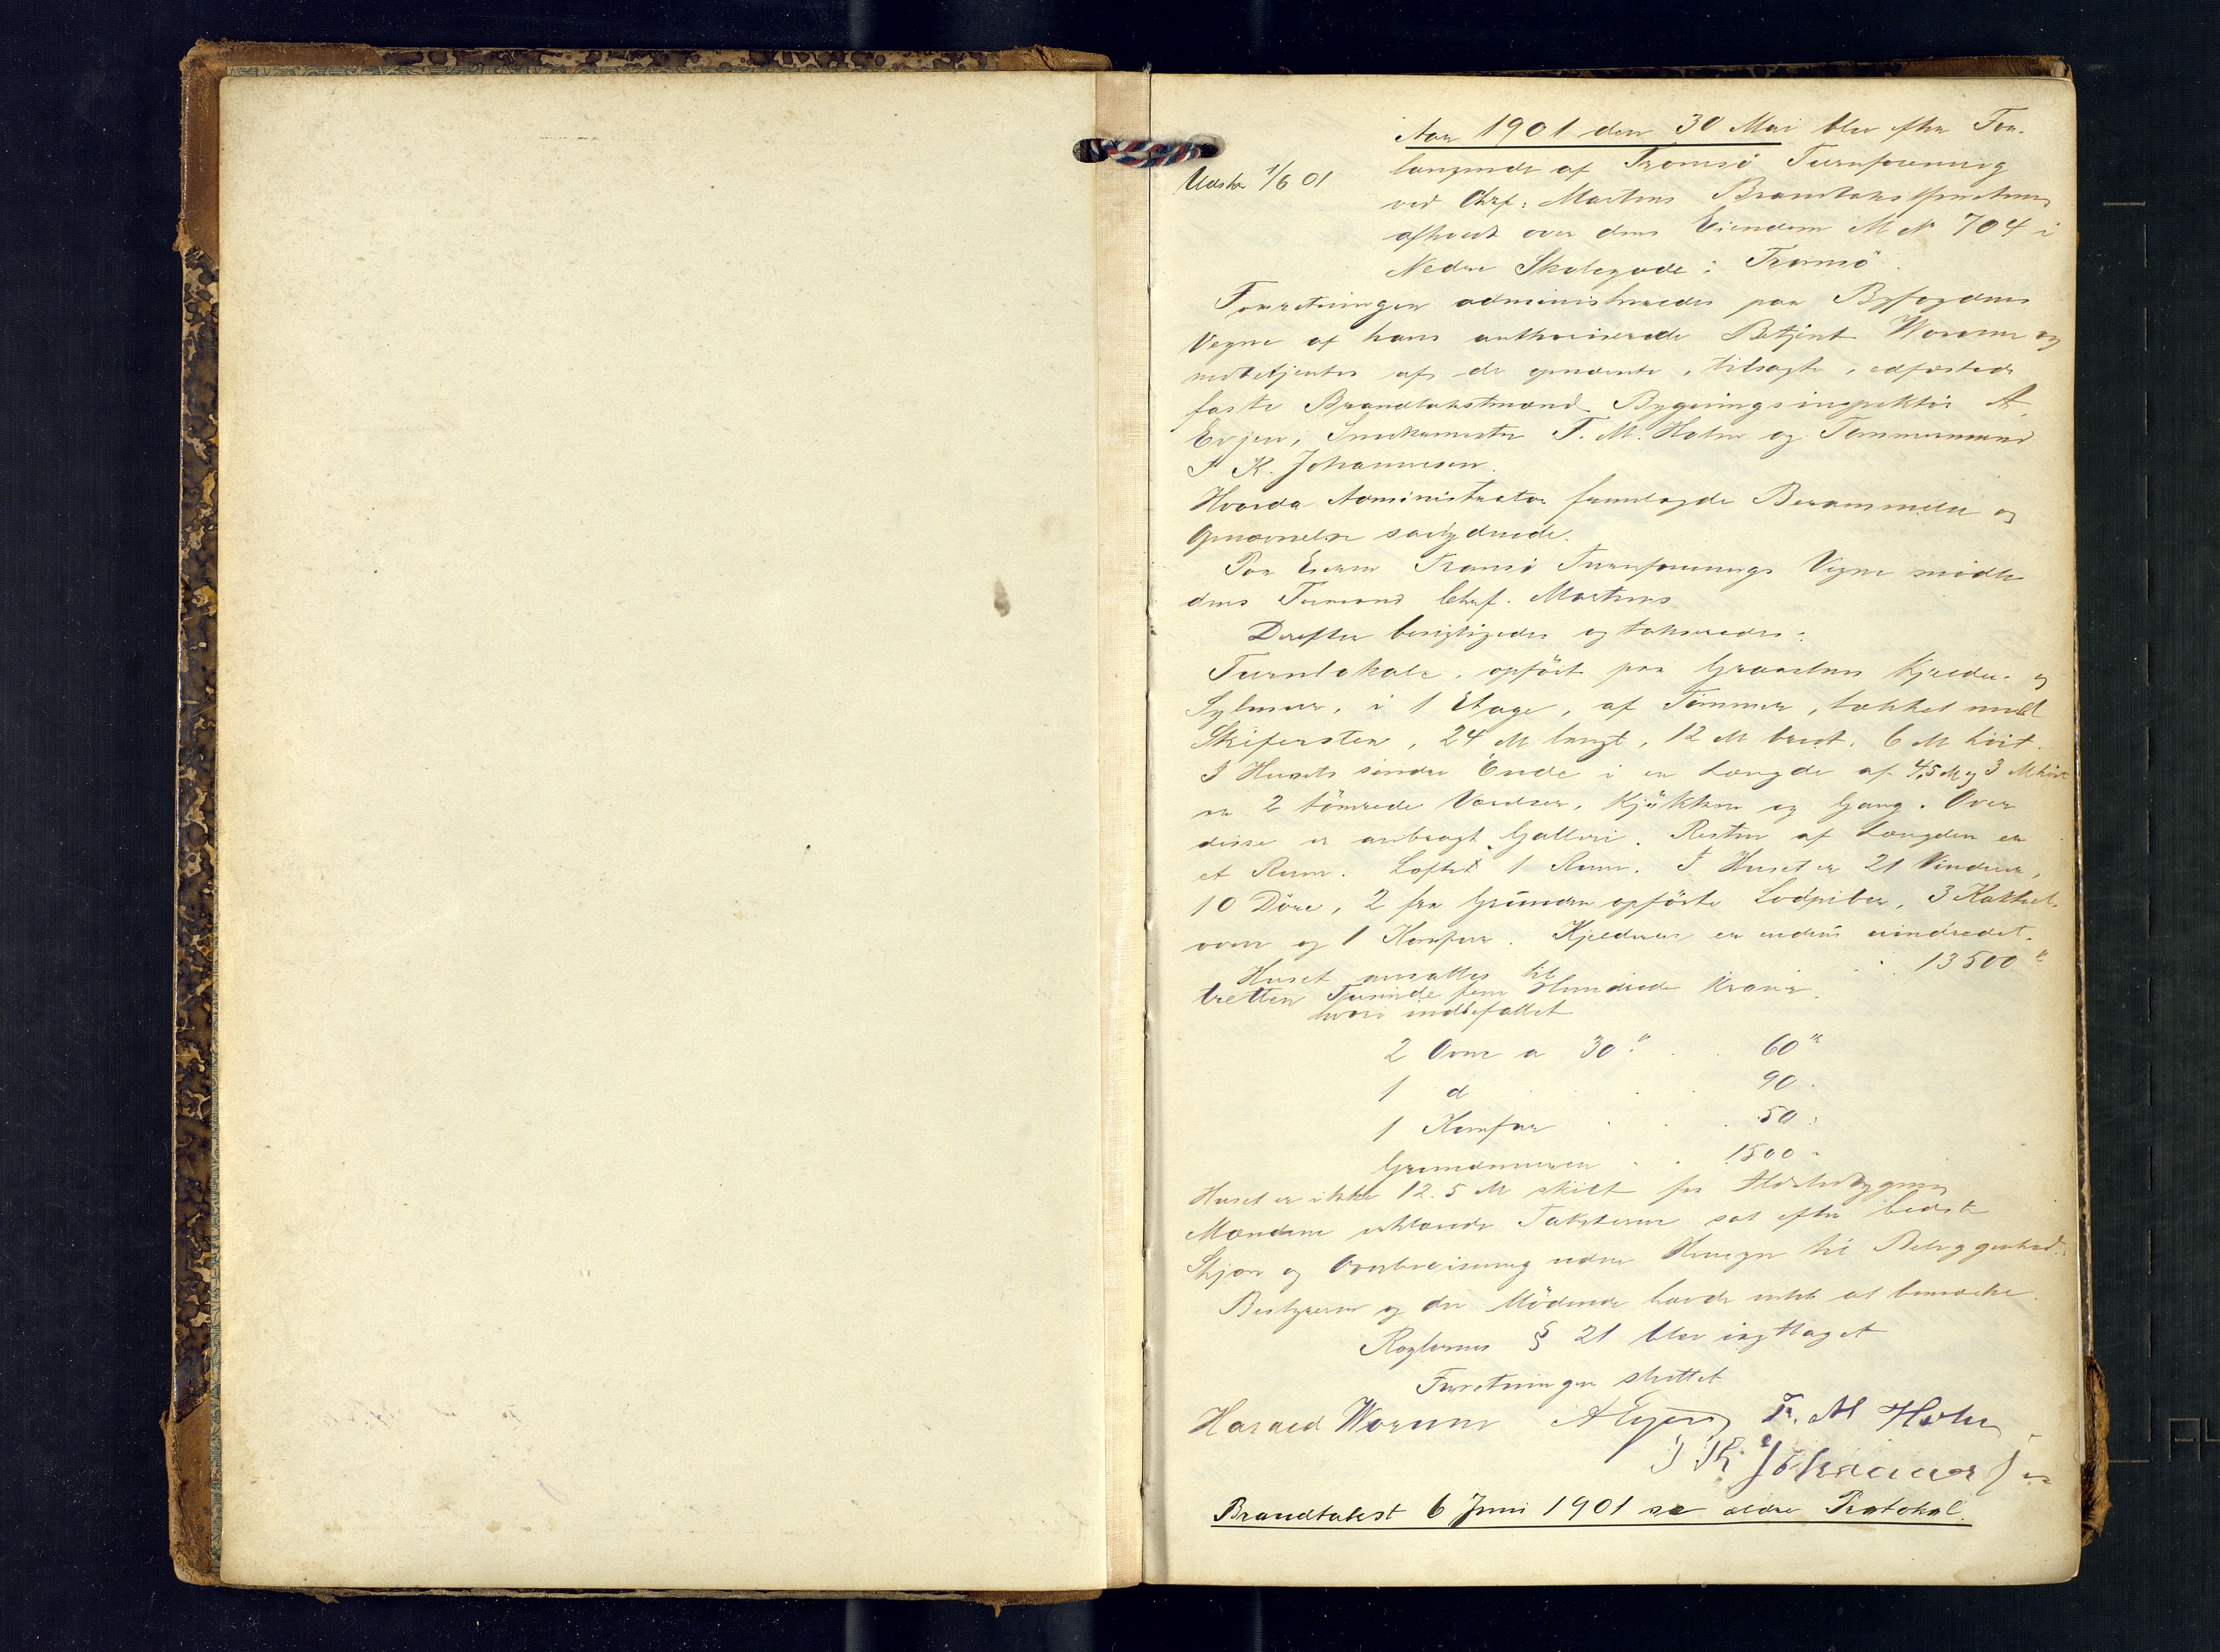 Aar 1901 den 30 Mai blev efter For-
Udskr 1/6 01
langende af Tromsö Turnforening
ved Chrf: Martens Brandtakstforretning
afholdt over dens Eiendom M N 704 i
Nedre Skolegade i Tromsö.
Forretningen administreredes paa Byfogdens
Vegne af hans authoriserede Betjent Worum og
medbetjentes af de opnævnte, tilsagte, edfæstede
faste Brandtakstmænd Bygningsinspektör A.
Evjen, Snedkermester F. M. Holm og Tømmermand
J K. Johannesen.
Hvorda Administrator fremlagde Berammelse og
Opnævnelse saalydende.
Paa Eieren Tromsö Turnforenings Vegne mödte
dens Formand Chrf. Martens
Derefter besigtigedes og taksteredes:
Turnlokale, opfört paa Graastens Kjelder- og
Sylmur, i 1 Etage, af Tömmer, tækket med
Skifersten, 24 M langt, 12 M bredt, 6 M höit.
I Husets söndre Ende i en Længde af 4,5 M og 3 M höit
er 2 tömrede Værelser, Kjökken og Gang. Over
disse er anbragt Galleri. Resten af Længden er
et Rum. Loftet 1 Rum. I Huset er 21 Vinduer,
10 Döre, 2 fra Grunden opförte Lodpiber, 3 Kakkel-
ovne og 1 Komfur. Kjelderen er endnu uindredet.
Huset ansattes til 13500 "
tretten Tusinde fem Hundrede Kroner.
hvori indbefattet
2 Ovne a 30 " 60 "
1 d 90 "
1 Komfur 50 "
Grundmuren 1500 "
Huset er ikke 12.5 M skilt fra Bebyggelse
Mændene erklærede Taksterne sat efter bedste
Skjön og Overbevisning uden Hensyn til Beliggenhed.
Bestyreren og den Mödende havde intet at bemærke.
Reglernes § 21 blev iagttaget
Forretningen sluttet
Harald Worum A Evjen F. M Holm
J K Johannesen
Brandtakst 6 Juni 1901 se ældre Protokol.